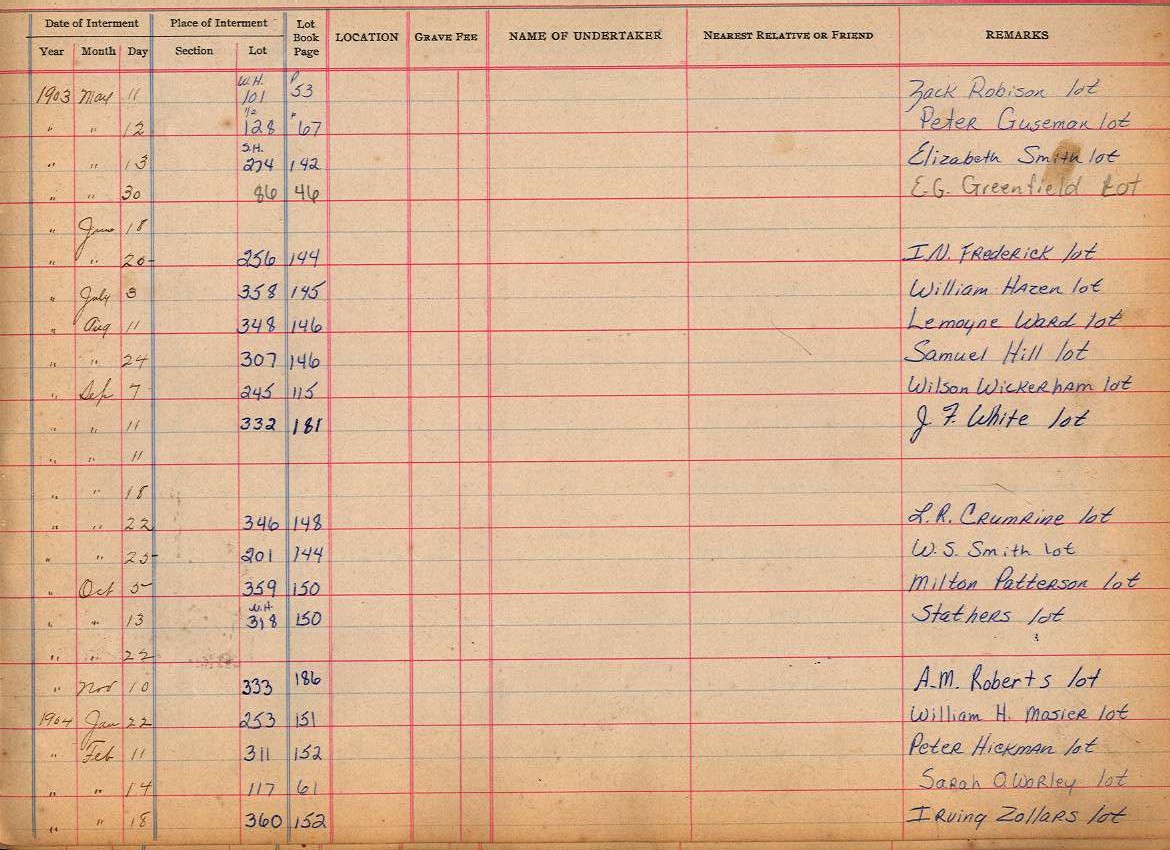 Date of Interment Place of Interment Lot Book Page LOCATION GRAVE FEE NAME OF UNDERTAKER NEAREST RELATIVE OR FRIEND REMARKS
Year Month Day Section Lot
W.H. P
1903 May 11 101 53 Zack Robison lot
1/2
" " 12 128 " 67 Peter Guseman lot
S.H.
" " 13 274 142 Elizabeth Smith lot
" " 30 86 46 E.G. Greenfield Lot
" June 18
" " 20 256 144 I.N. Frederick lot
" July 3 358 145 William Hazen lot
" Aug 11 348 146 Lemoyne Ward lot
" " 24 307 146 Samuel Hill lot
" Sep 7 245 115 Wilson Wickerham lot
" " 11 332 181 J. F. White lot
" " 11
" " 18
" " 22 346 148 L.R. Crumrine lot
" " 25 201 144 W.S. Smith lot
" Oct 5 359 150 Milton Patterson lot
" " 13 318 150 Stathers lot
" " 22
" Nov 10 333 186 A.M. Roberts lot
1904 Jan 22 253 151 William H. Masier lot
" Feb 11 311 152 Peter Hickman lot
" " 14 117 61 Sarah O. Worley lot
" " 18 360 152 Irving Zollars lot